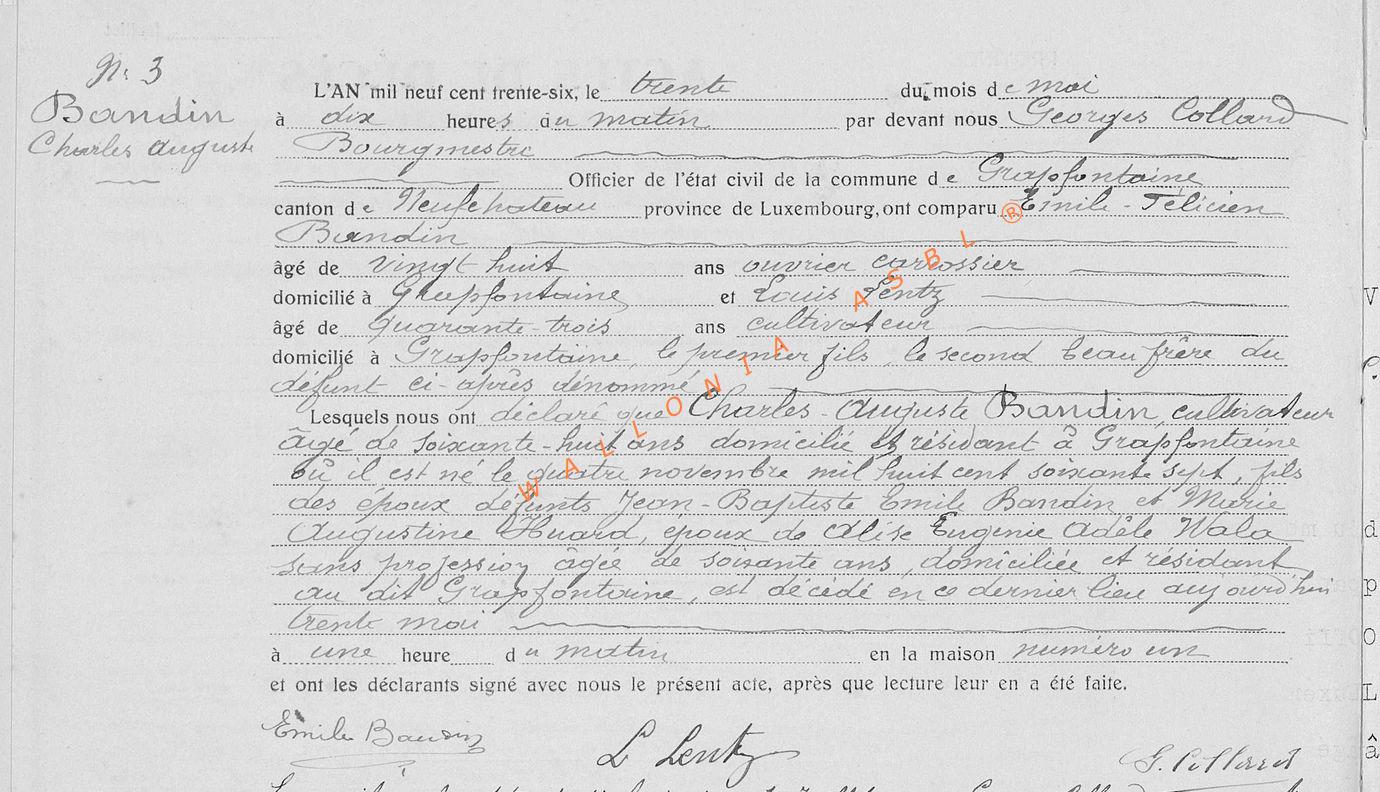 N. 3
Baudin
Charles Auguste
L'AN mil neuf cent trente-six, le trente du mois de mai
à dix heures du matin par devant nous Georges Collard
Bourgmestre
Officier de l'état civil de la commune de Grapfontaine
canton de Neufchateau province de Luxembourg, ont comparu Emile-Félicien
Baudin
âgé de vingt huit ans ouvrier carrossier
domicilié à Grapfontaine et Louis Lentz
âgé de quarante-trois ans cultivateur
domicilié à Grapfontaine, le premier fils, le second beau frère du
défunt ci-après dénommé
Lesquels nous ont déclaré que Charles-Auguste Baudin, cultivateur
âgé de soixante-huit ans domicilié et résidant à Grapfontaine
où il est né le quatre novembre mil huit cent soixante sept, fils
des époux défunts Jean-Baptiste Emile Baudin et Marie
Augustine Huard, époux de Alise Eugenie Adèle Wala
sans profession âgée de soixante ans, domiciliée et résidant
au dit Grapfontaine, est décédé en ce dernier lieu aujourd'hui
trente mai
à une heure du matin en la maison numéro un
et ont les déclarants signé avec nous le présent acte, après que lecture leur en a été faite.
Emile Baudin
L Lentz
G. Collard
WALLONIA ASBL ®